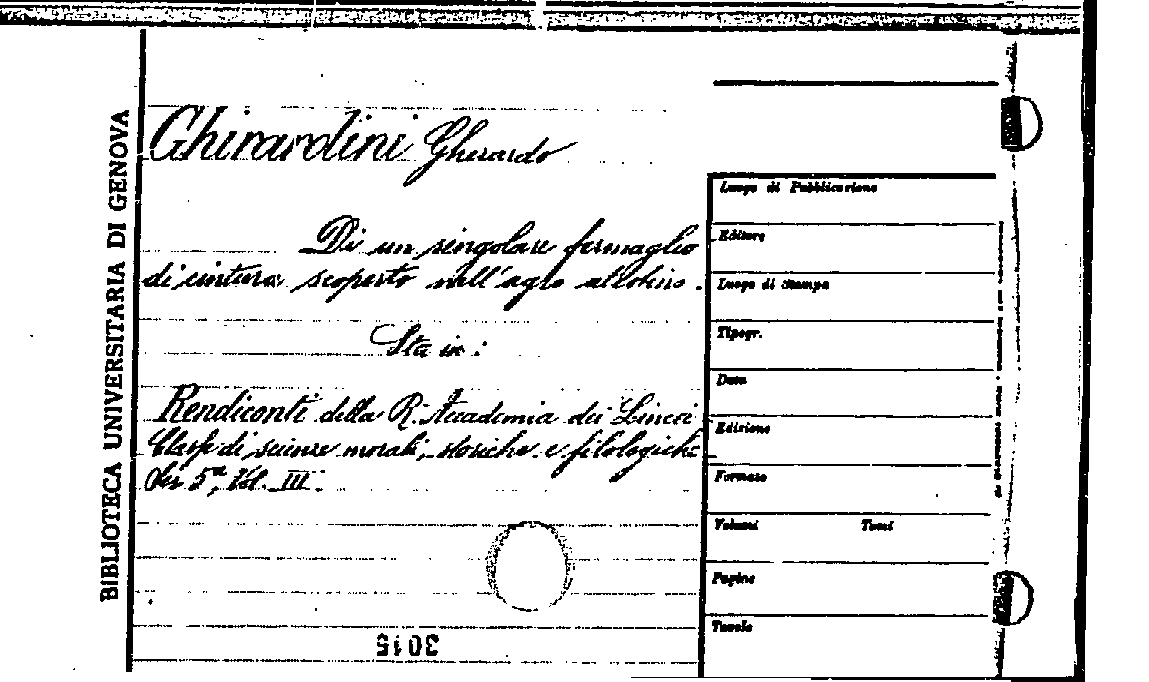 BIBLIOTECA UNIVERSITARIA DI GENOVA
Ghirardini Gherardo
Di un singolare fermaglio
di cintura scoperto nell'agro altotino.
Sta in:
Rendiconti della R. Accademia dei Lincei
Classe di scienze morali, storiche e filologiche
Ser 5ª, Vol. III.
3015
Luogo di Pubblicazione
Editore
Luogo di Stampa
Tipogr.
Data
Edizione
Formato
Volumi Tomi
Pagine
Tavole